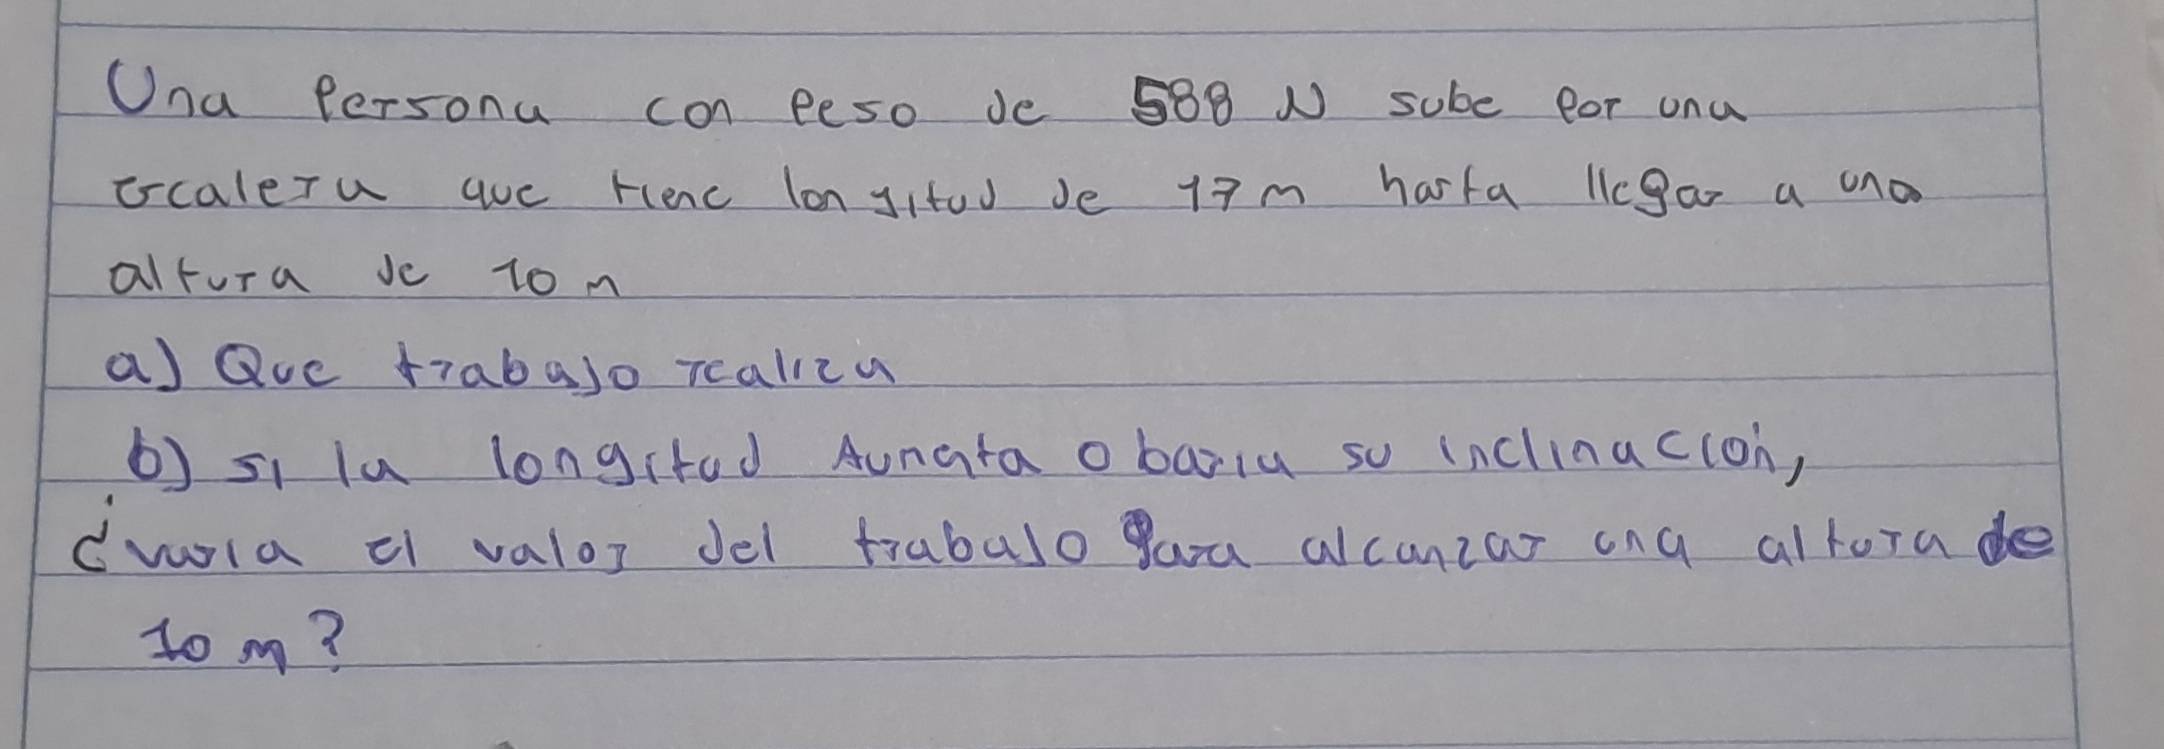 Una Persona con peso de 588 N sube por una
escalera que tiene longitud de 17 m hasta llegar a una
altura de 10 m
a) Que trabajo realiza
b) si la longitud Aumenta o baria su inclinación,
¿varia el valor del trabajo para alcanzar una altura de
10 m?